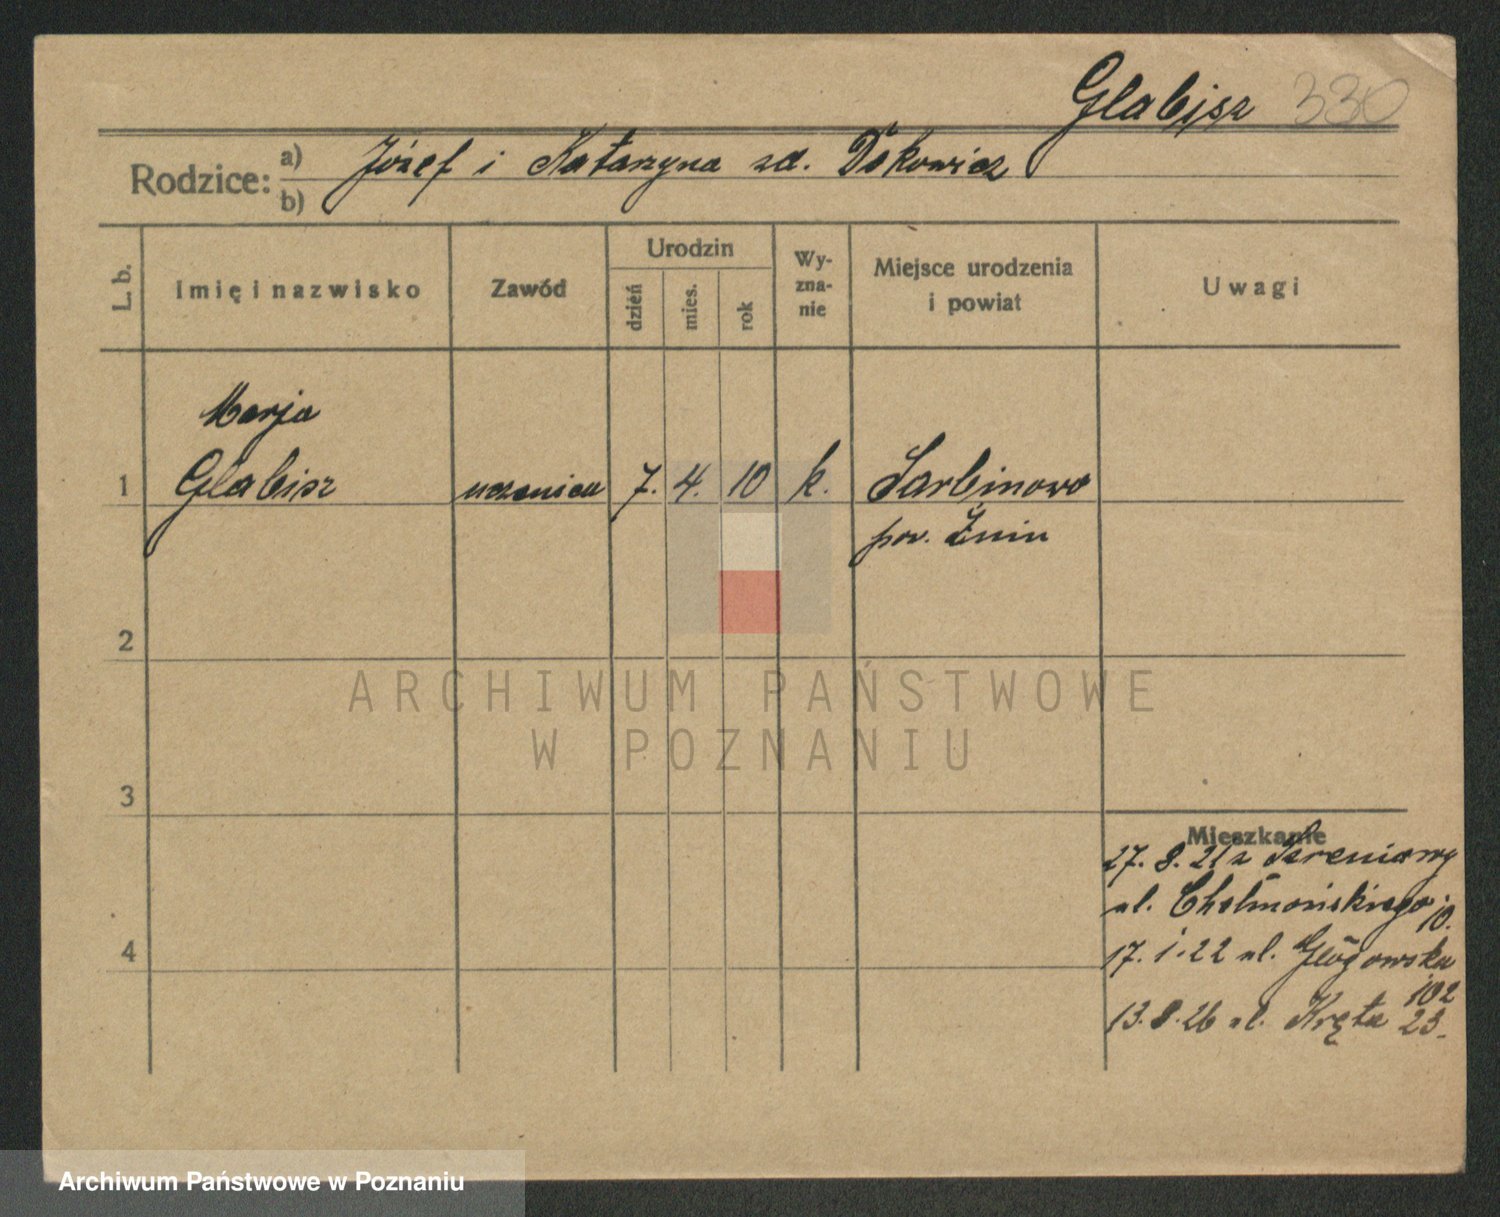 Glabisz 330
Rodzice: a) Józef i Katarzyna zd.
b)
L. b.
Imię i nazwisko
Zawód
Urodzin
dzień
mies.
rok
Wy-
zna-
nie
Miejsce urodzenia
i powiat
Uwagi
Marja
1 Glabisz uczenica 7. 4. 10 k. Sarbinowo
pow. Żnin
2
ARCHIWUM PAŃSTWOWE
W POZNANIU
3
Mieszkanie
27. 8. 21 z
ul. Chełmońskiego 10.
4
17. 1. 22 ul. Głogowska
102
13. 8. 26 ul. Kręta 23.
Archiwum Państwowe w Poznaniu